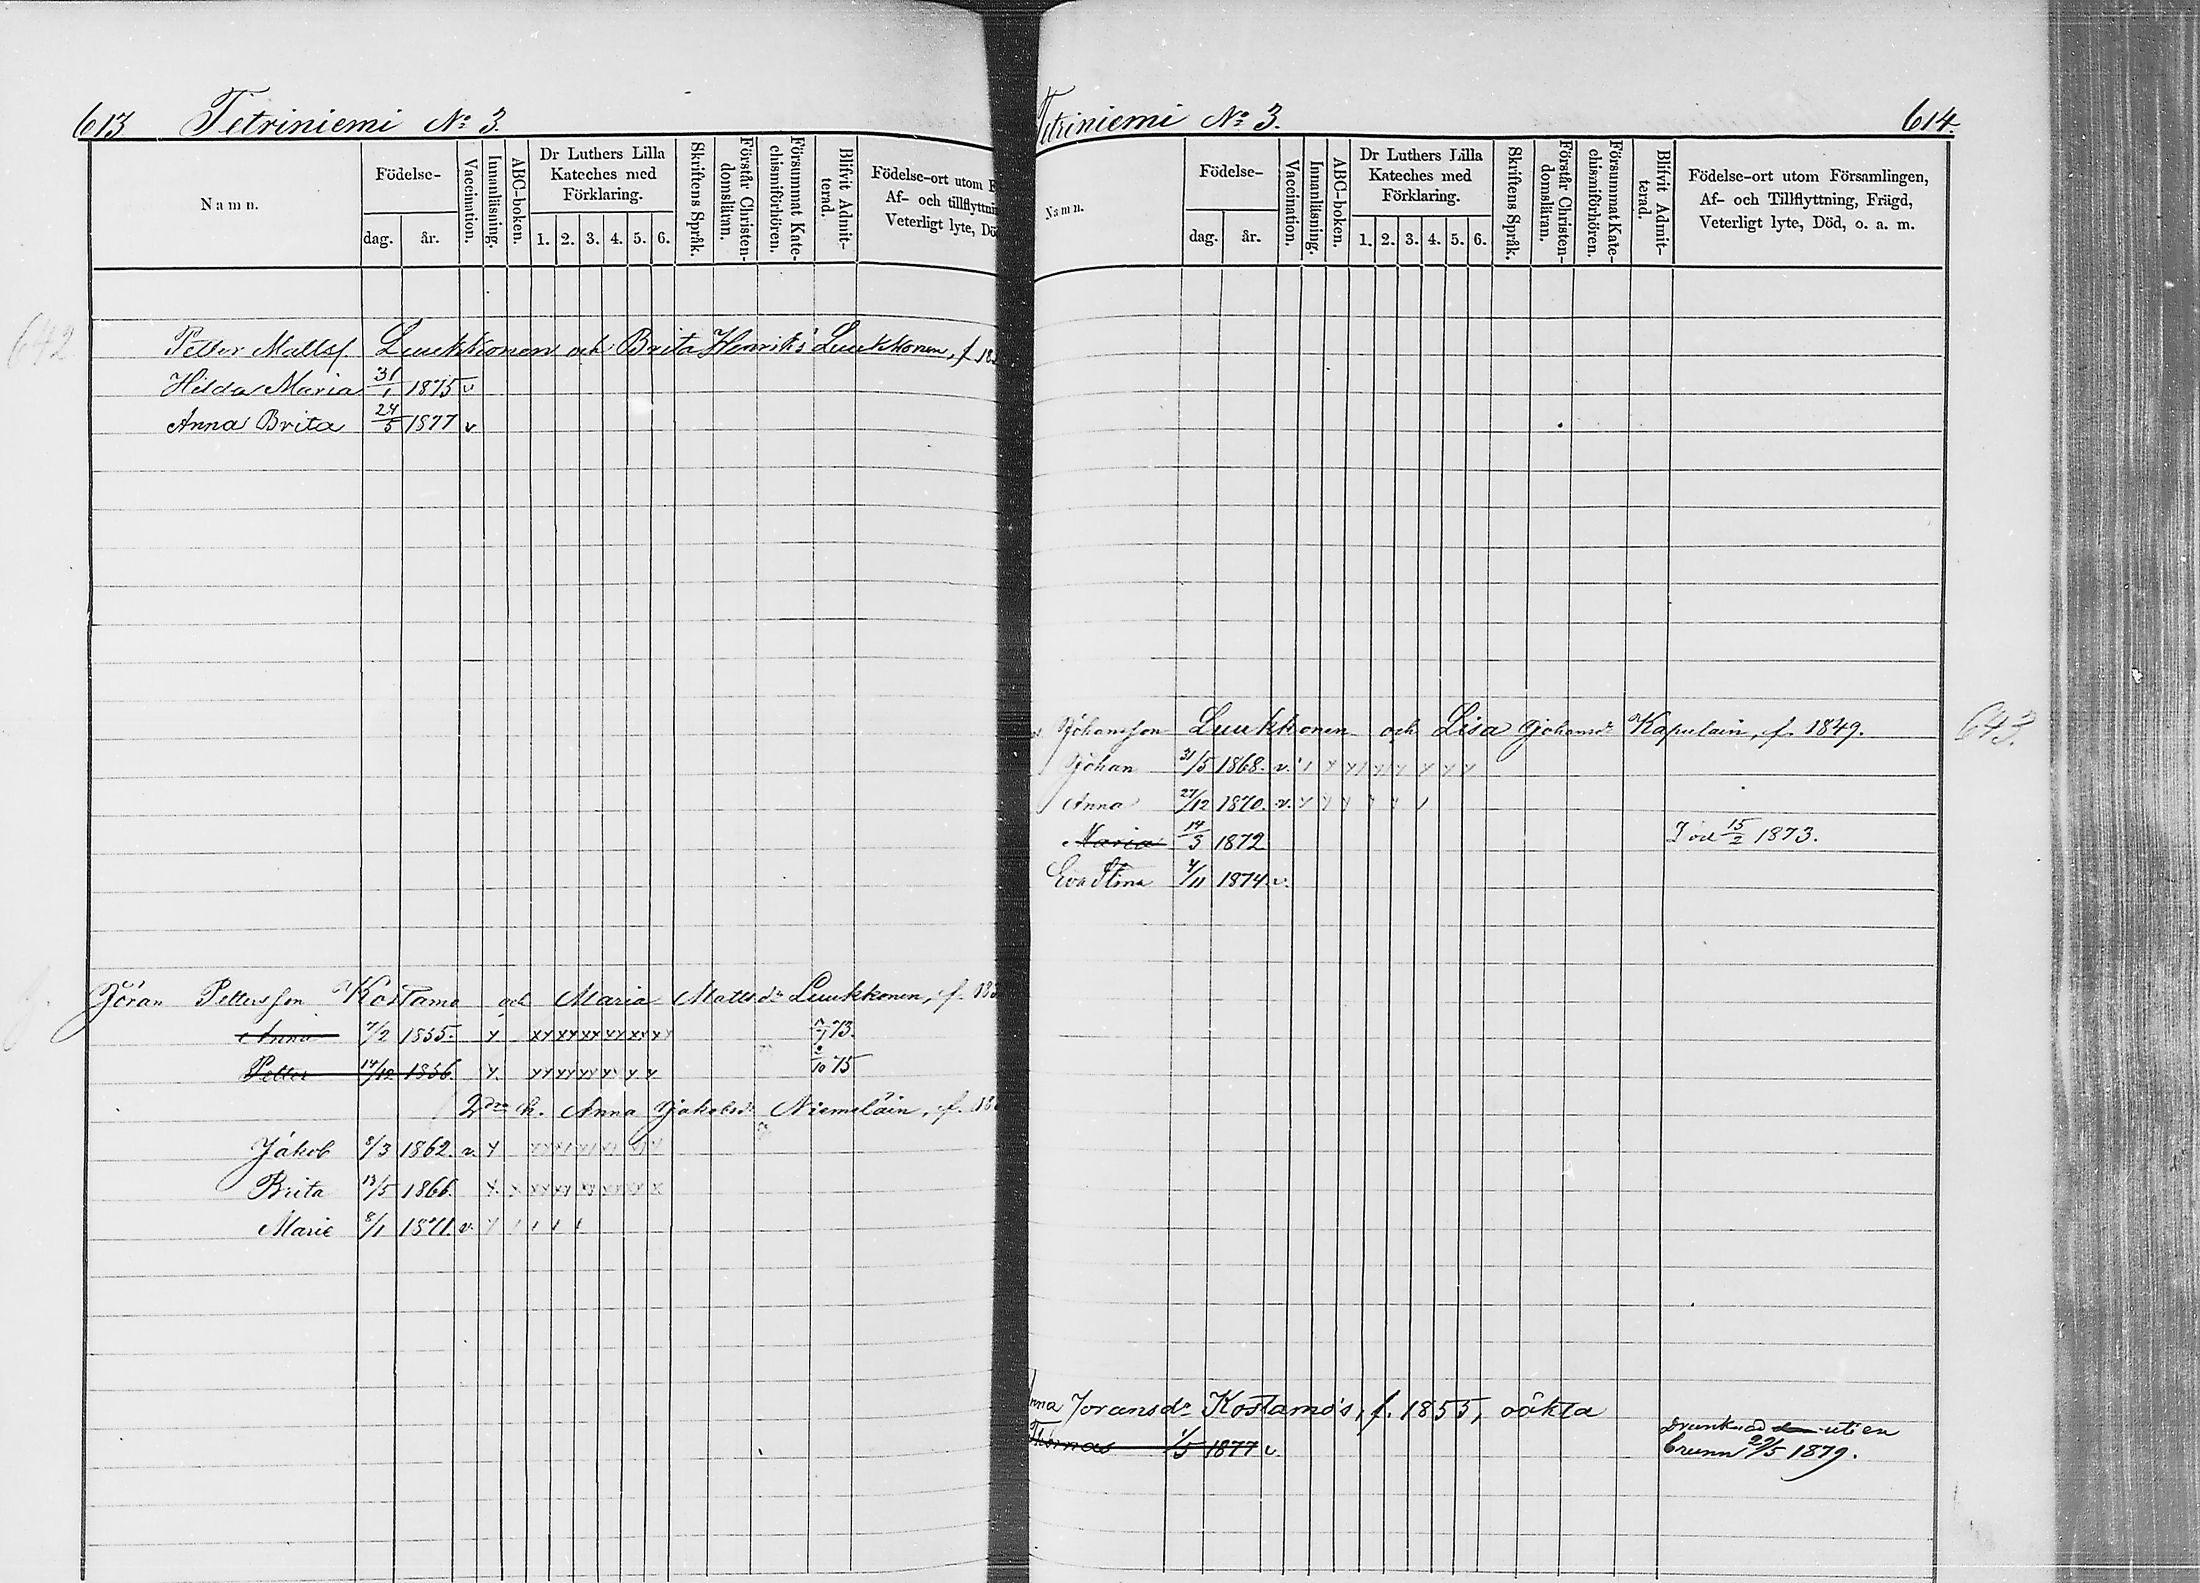 613 Tetriniemi No 3.
Namn.
Födelse-
dag. år.
Vaccination.
Innanläsning.
ABC-boken.
Dr Luthers Lilla Kateches med Förklaring.
1. 2. 3. 4. 5. 6.
Skriftens Språk.
Förstår Christendomsläran.
Försummat Katechismiförhören.
Blifvit Admitterad.
Födelse-ort utom
Af- och tillflyttni
Veterligt lyte, Dö
642
Petter Mattsf. Luukkonen och Brita Henriks Luukkonen, f. 18
Hilda Maria 31/1 1875 v
Anna Brita 24/5 1877 v
Jöran Pettersson Kostamo och Maria Mattsdr Luukkonen, f. 18
Anna 7/2 1855. x xx xx xx xx xx xx 73.
Petter 14/12 1856. x. xx xx xx x x x 2/10 75
2dra h. Anna Jakobsdr Niemeläin, f. 18
Jakob 8/3 1862. v. x
Brita 13/5 1866. x
Marie 8/1 1871. v.
Tetriniemi No 3. 614.
Namn.
Födelse-
dag. år.
Vaccination.
Innanläsning.
ABC-boken.
Dr Luthers Lilla Kateches med Förklaring.
1. 2. 3. 4. 5. 6.
Skriftens Språk.
Förstår Christendomsläran.
Försummat Katechismiförhören.
Blifvit Admitterad.
Födelse-ort utom Församlingen,
Af- och Tillflyttning, Frägd,
Veterligt lyte, Död, o. a. m.
Johansson Luukkonen och Lisa Johansdr Kapulain, f. 1849. 643.
Johan 31/5 1868. v.
Anna 27/12 1870. v.
Maria 14/3 1872 Död 15/2 1873.
Eva Stina 4/11 1874. v.
nna Joransdr Kostamo's, f. 1855, oäkta
Thomas 1/5 1877 v. Drunknad uti en
brunn 29/5 1879.